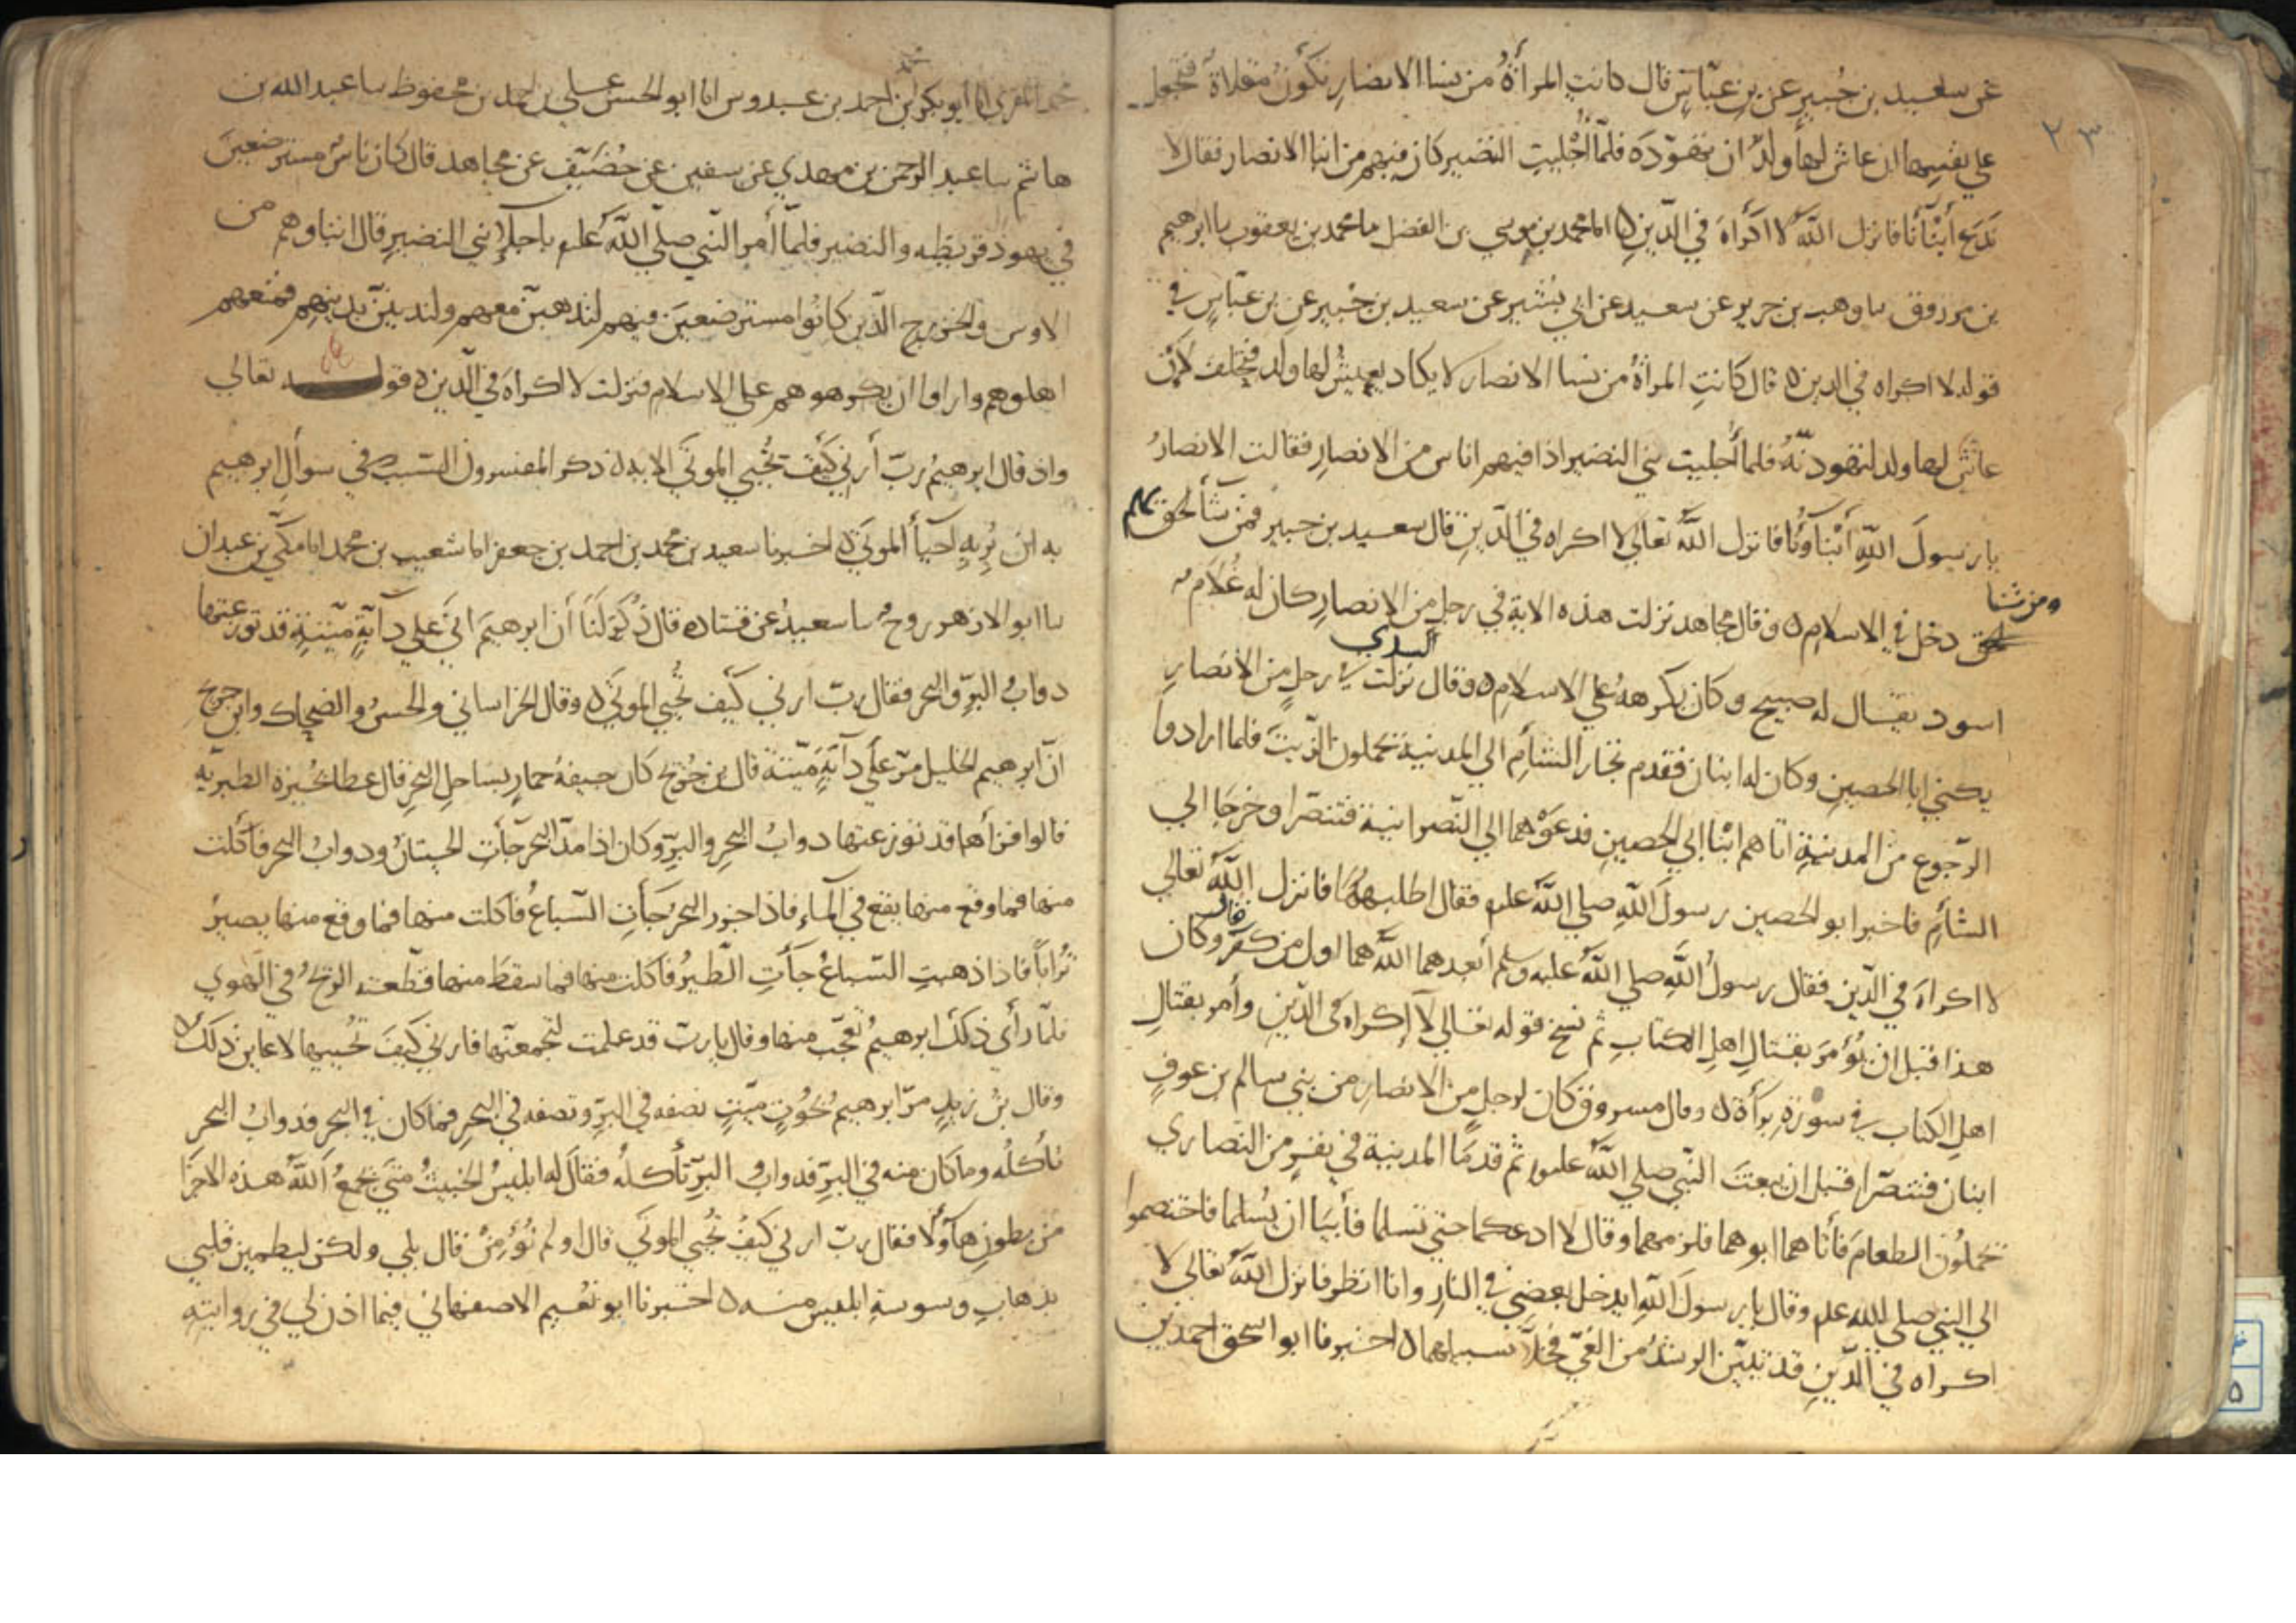 ٢٣
عن سعيد بن جبير عن بن عباس قال كانت المرأة من نسا الانصار تكون مقلاة فتجعل
علي نفسها ان عاش لها ولد ان تهوده فلما أجليت النضير كان فيهم من ابنا الانصار فقالوا لا
ندع أبنأنا فانزل الله لا اكراه في الدين ٥ انا محمد بن موسي بن الفضل ما محمد بن يعقوب ما ابرهيم
بن مرزوق ما وهب بن جرير عن سعيد عن ابي بشير عن سعيد بن جبير عن بن عباس في
قوله لا اكراه في الدين ٥ قال كانت المرأة من نسا الانصار لا يكاد يعيش لها ولد فتحلف لئن
عاش لها ولد لتهودنه فلما أجليت بني النضير اذا فيهم اناس من الانصار فقالت الانصار
يا رسول الله أبناونا فانزل الله تعالي لا اكراه في الدين قال سعيد بن جبير فمن شأ لحق بهم
ومن شا دخل في الاسلام ٥ وقال مجاهد نزلت هذه الاية في رجل من الانصار كان له غلام
اسود يقال له صبيح وكان يكرهه علي الاسلام ٥ وقال السدي نزلت في رجل من الانصار
يكني ابا الحصين وكان له ابنان فقدم تجار الشأم الي المدينة يحملون الزيت فلما ارادوا
الرجوع من المدينة اتاهم ابنا ابي الحصين فدعوهما الي النصرانية فتنصرا وخرجا الي
الشأم فاخبر ابو الحصين رسول الله صلي الله عليه فقال اطلبهما فانزل الله تعالي
لا اكراه في الدين فقال رسول الله صلي الله عليه وسلم أبعدهما الله هما اول من كفر قال وكان
هذا قبل ان يؤمر بقتال اهل الكتاب ثم نسخ قوله تعالي لا إكراه في الدين وأمر بقتال
اهل الكتاب في سورة برأة ٥ وقال مسروق كان لرجل من الانصار من بني سالم بن عوف
ابنان فتنصرا قبل ان يبعث النبي صلي الله عليه ثم قدما المدينة في نفر من النصاري
يحملون الطعام فأتاهما ابوهما فلزمهما وقال لا ادعكما حتي تسلما فأبيا ان يسلما فاختصموا
الي النبي صلي الله عليه وقال يا رسول الله ايدخل بعضي في النار وانا انظر فانزل الله تعالي لا
اكراه في الدين قد تبين الرشد من الغي فخلا سبيلهما ٥ اخبرنا ابو اسحق احمد بن
محمد المقري انا أبو بكر بن احمد بن عبدوس انا ابو الحسن علي بن احمد بن محفوظ ما عبد الله بن
هاشم ما عبد الرحمن بن مهدي عن سفين عن خصيف عن مجاهد قال كان ناس مسترضعين
في يهود قريظه والنضير فلما أمر النبي صلي الله عليه باجلا بني النضير قال ابناوهم من
الاوس والخزرج الذين كانوا مسترضعين فيهم لنذهبن معهم ولندينن بدينهم فمنعهم
اهلوهم وارادوا ان يكرهوهم علي الاسلام فنزلت لا اكراه في الدين ٥ قوله تعالي
واذ قال ابرهيم رب أرني كيف تحيي الموتي الاية ٥ ذكر المفسرون السبب في سوأل ابرهيم
به ان يريه احيأ الموتي ٥ اخبرنا سعيد بن محمد بن احمد بن جعفر انا شعيب بن محمد انا مكي بن عبدان
ما ابو الازهر روح ما سعيد عن قتاده قال ذكر لنا أن ابرهيم اتي علي دآبة ميتة قد توزعتها
دواب البر والبحر فقال رب ارني كيف تحيي الموتي ٥ وقال الخراساني والحسن والضحاك وابن جريج
ان ابرهيم الخليل مر علي دآبة ميتة قال بن جريج كان جيفة حمار بساحل البحر قال عطا بحيرة الطبريه
قالوا فرأها قد توزعتها دواب البحر والبر وكان اذا مد البحر جأت الحيتان ودواب البحر فأكلت
منها فما وقع منها يقع في المآء فاذا جزر البحر جأت السباع فأكلت منها فما وقع منها يصير
ترابا فاذا ذهبت السباع جأت الطير فأكلت منها فما سقط منها قطعته الريح في الهوي
فلما رأي ذلك ابرهيم تعجب منها وقال يا رب قد علمت لتجمعنها فارني كيف تحييها لاعاين ذلك ٥
وقال بن زيد مر ابرهيم بحوت ميت نصفه في البر ونصفه في البحر فما كان في البحر فدواب البحر
تأكله وما كان منه في البر فدواب البر تأكله فقال له ابليس الخبيث متي يجمع الله هذه الاجزا
من بطون هآولا فقال رب ارني كيف تحيي الموتي قال اولم تؤمن قال بلي ولكن ليطمين قلبي
بذهاب وسوسة ابليس منه ٥ اخبرنا ابو نعيم الاصفهاني فيما اذن لي في روايته